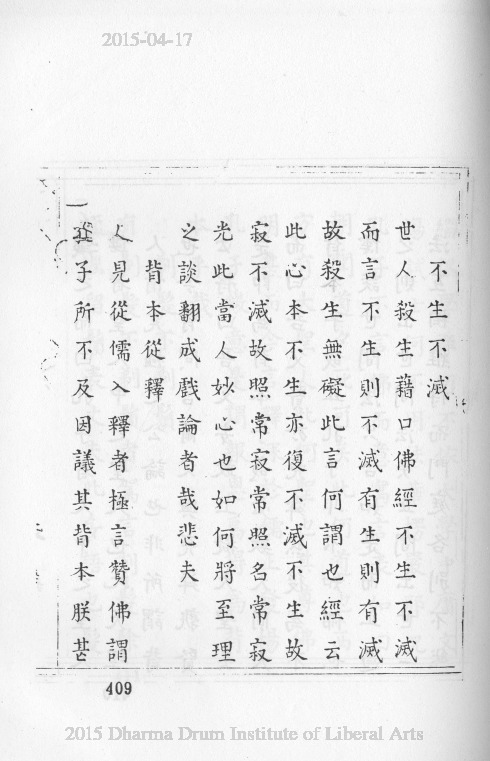 2015-04-17
不生不滅
世人殺生藉口佛經不生不滅
而言不生則不滅有生則有滅
故殺生無礙此言何謂也經云
此心本不生亦復不滅不生故
寂不滅故照常寂常照名常寂
光此當人妙心也如何將至理
之談翻成戲論者哉悲夫
背本從釋
人見從儒入釋者極言贊佛謂
子所不及因議其背本朕甚
409
2015 Dharma Drum Institute of Liberal Arts